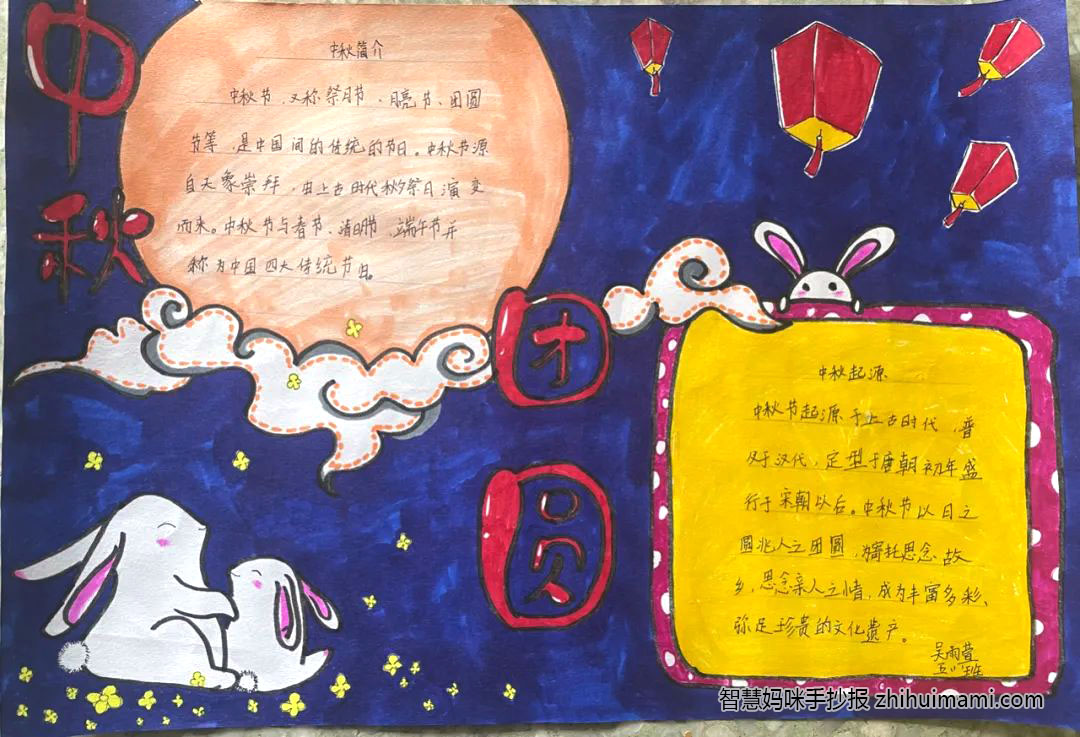 中秋
中秋简介
中秋节、又称祭月节、月亮节、团圆
节等,是中国间的传统的节日。中秋节源
自天象崇拜,由上古时代秋夕祭月演变
而来。中秋节与春节、清明节、端午节并
称为中国四大传统节日。
团圆
中秋起源
中秋节起源于上古时代,普
及于汉代,定型于唐朝初年盛
行于宋朝以后。中秋节以月之
圆兆人之团圆,为寄托思念故
乡,思念亲人之情,成为丰富多彩、
弥足珍贵的文化遗产。
吴雨萱
班
智慧妈咪手抄报 zhihuimami.com